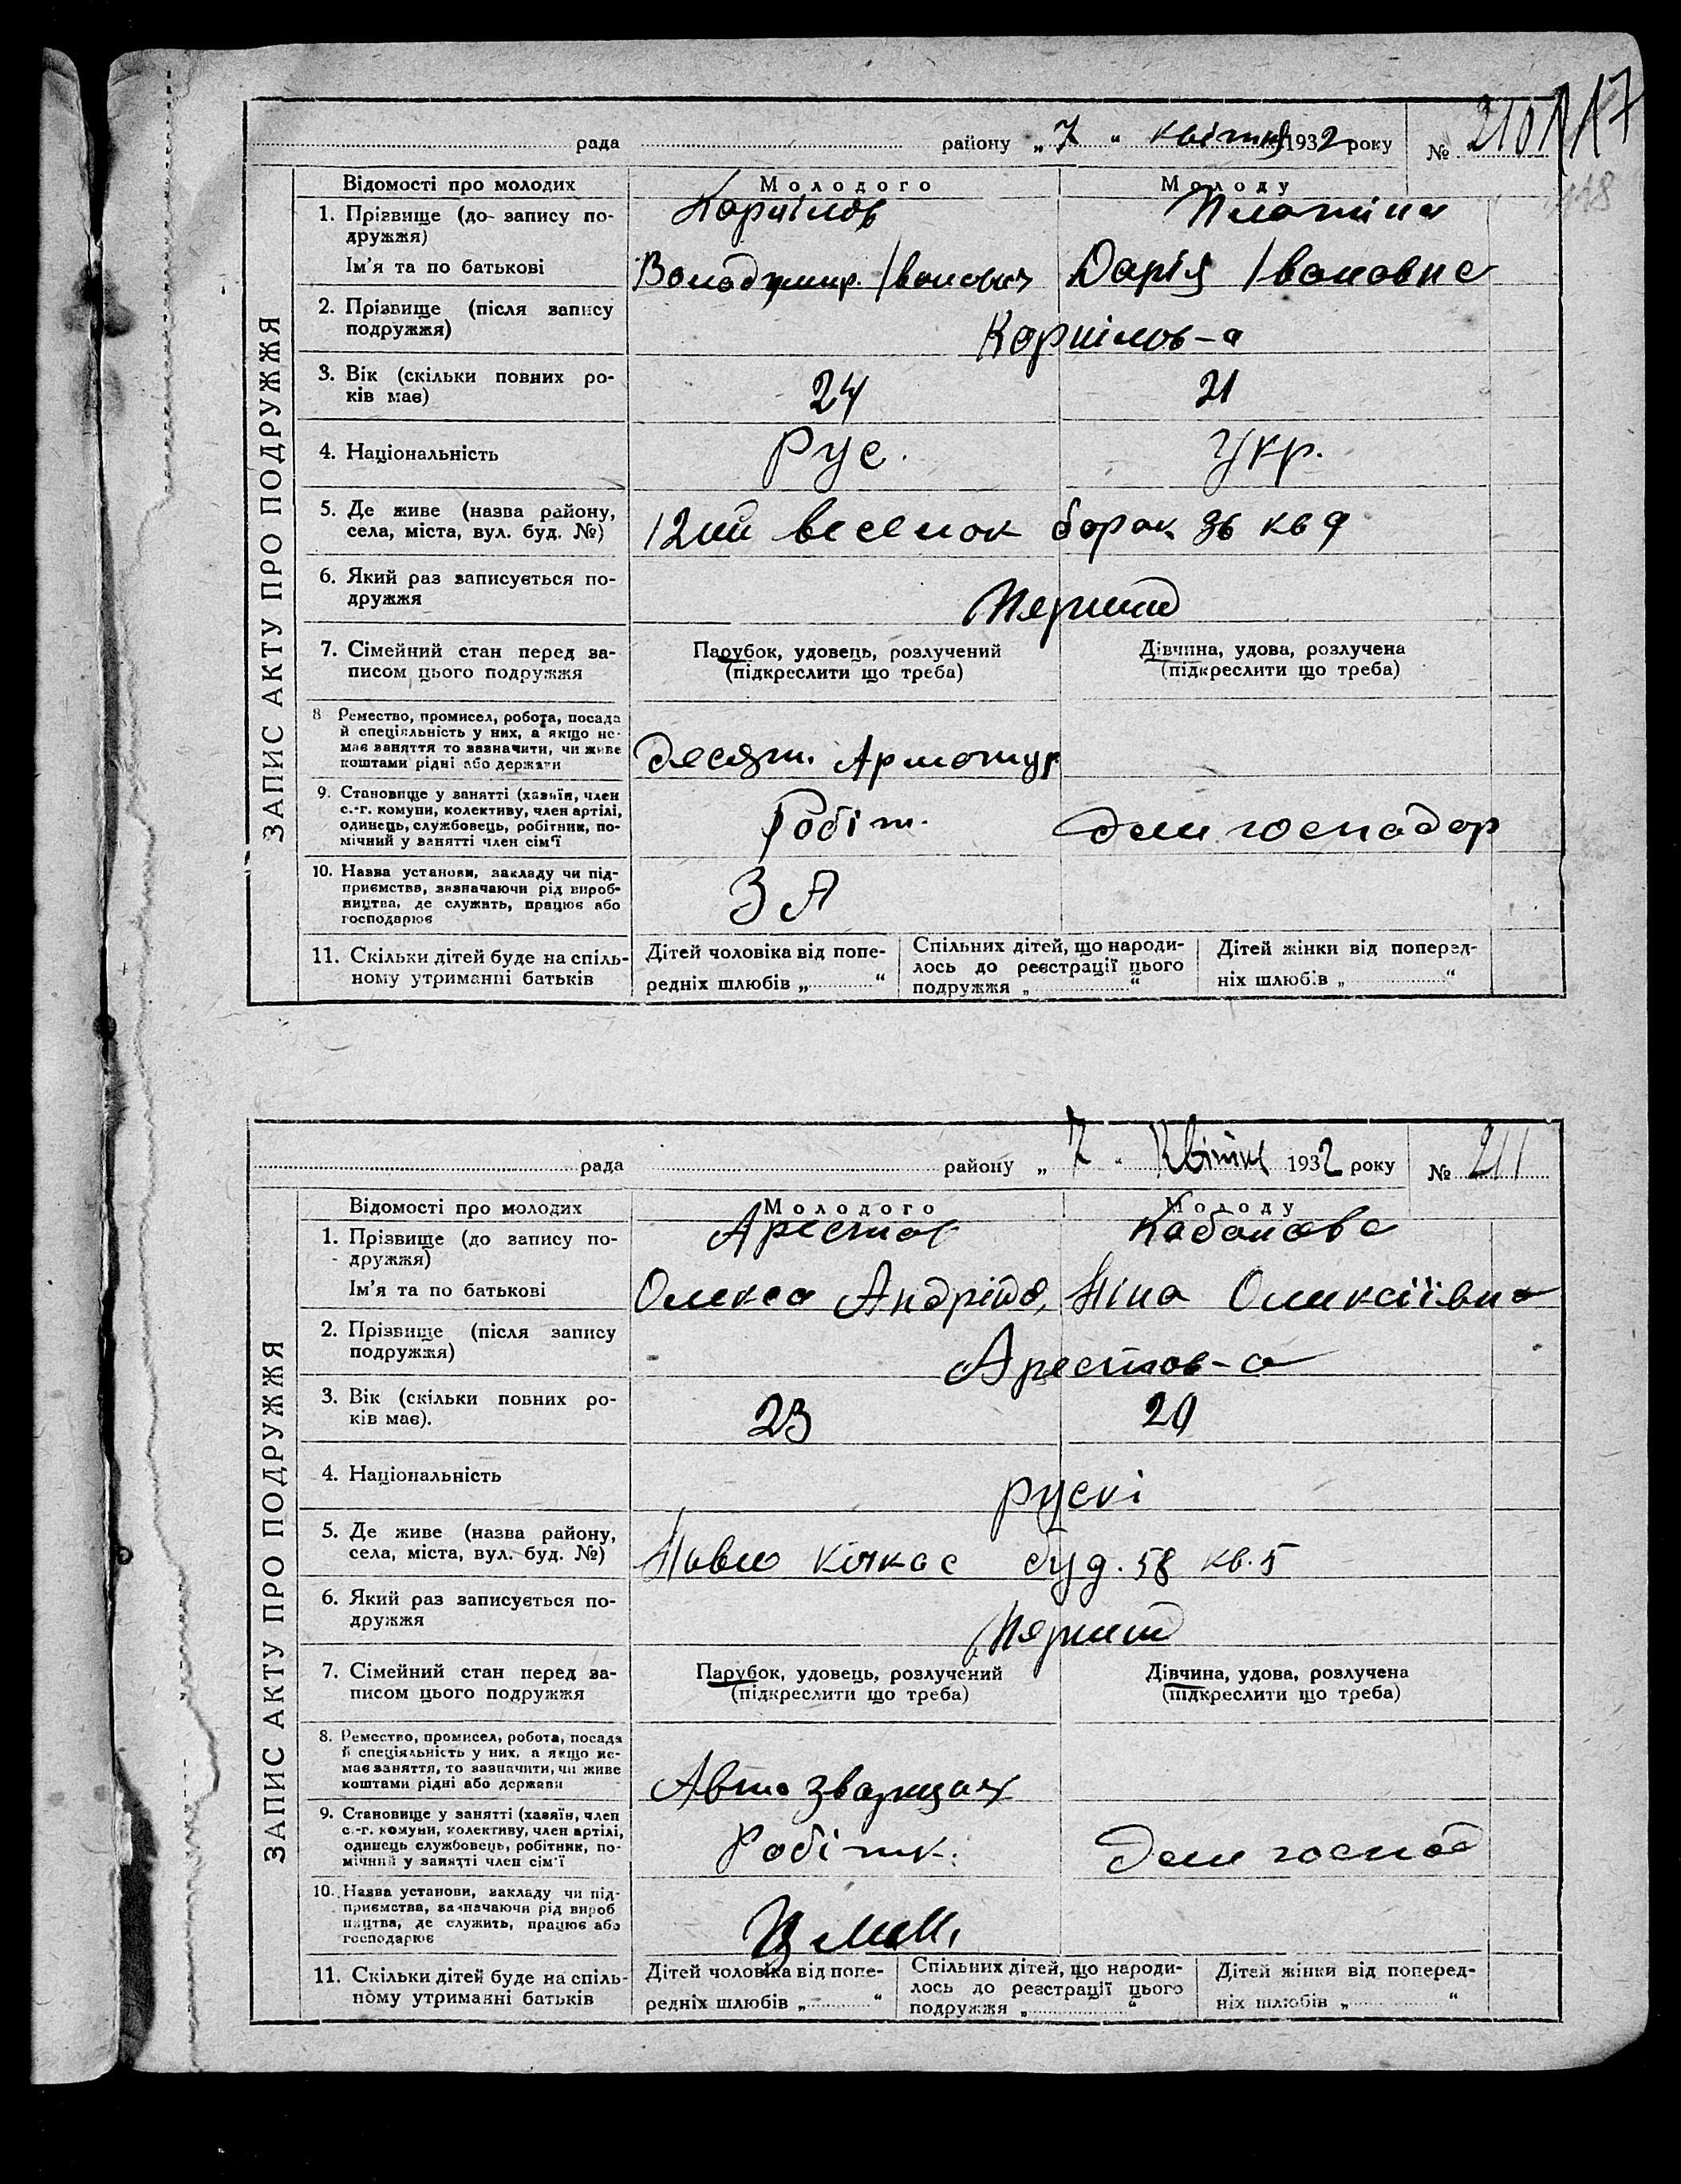 117
118
рада району „ 7 “ квітня 1932 року № 210
Відомості про молодих Молодого Молоду
ЗАПИС АКТУ ПРО ПОДРУЖЖЯ
1. Прізвище (до запису по-
дружжя)
Корнілов Платіна
Ім'я та по батькові
Володимир. Іванович Дарія Івановна
2. Прізвище (після запису
подружжя)
Корнілов-а
3. Вік (скільки повних ро-
ків має)
24 21
4. Національність
Рус. Укр.
5. Де живе (назва району,
села, міста, вул. буд. №)
12ий веселок барак 36 кв 9
6. Який раз записується по-
дружжя
Перший
7. Сімейний стан перед за-
писом цього подружжя
Парубок, удовець, розлучений
(підкреслити що треба)
Дівчина, удова, розлучена
(підкреслити що треба)
8 Ремество, промисел, робота, посада
й спеціяльність у них, а якщо не-
має заняття то зазначити, чи живе
коштами рідні або держави
десят. Арматур
9. Становище у занятті (хазяїн, член
с.-г. комуни, колективу, член артілі,
одинець, службовець, робітник, по-
мічний у занятті член сім'ї
Робіт. дом господар
10. Назва установи, закладу чи під-
приємства, зазначаючи рід вироб-
ництва, де служить, працює або
господарює
З А
11. Скільки дітей буде на спіль-
ному утриманні батьків
Дітей чоловіка від попе-
редніх шлюбів „ “
Спільних дітей, що народи-
лось до реєстрації цього
подружжя „ “
Дітей жінки від поперед-
ніх шлюбів „ “
рада району „ 7 “ Квітня 1932 року № 211
Відомості про молодих Молодого Молоду
ЗАПИС АКТУ ПРО ПОДРУЖЖЯ
1. Прізвище (до запису по-
дружжя)
Арестов Кабанова
Ім'я та по батькові
Олекса Андрійов. Ніна Олексіївна
2. Прізвище (після запису
подружжя)
Арестов-а
3. Вік (скільки повних ро-
ків має).
23 20
4. Національність
рускі
5. Де живе (назва району,
села, міста, вул. буд. №)
Нови кічкас буд. 58 кв. 5
6. Який раз записується по-
дружжя
Перший
7. Сімейний стан перед за-
писом цього подружжя
Парубок, удовець, розлучений
(підкреслити що треба)
Дівчина, удова, розлучена
(підкреслити що треба)
8. Ремество, промисел, робота, посада
й спеціяльність у них, а якщо не-
має заняття, то зазначити, чи живе
коштами рідні або держави
Авто зварщик
9. Становище у занятті (хазяїн, член
с.-г. комуни, колективу, член артілі,
одинець службовець, робітник, по-
мічний у занятті член сім'ї
Робітк. дом господ
10. Назва установи, закладу чи під-
приємства, зазначаючи рід вироб
ництва, де служить, працює або
господарює
11. Скільки дітей буде на спіль-
ному утриманні батьків
Дітей чоловіка від попе-
редніх шлюбів „ “
Спільних дітей, що народи-
лось до реєстрації цього
подружжя „ “
Дітей жінки від поперед-
ніх шлюбів „ “